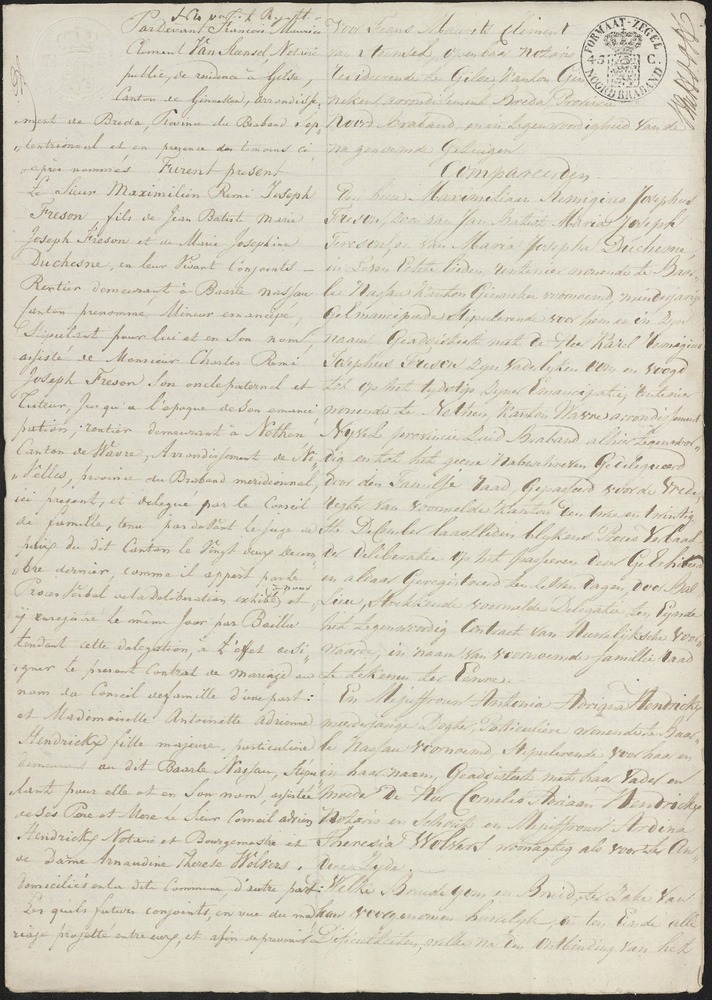 Pardevant François Maurice
Clement Van Mansel Notaire
public, de residence à Gilse,
Canton de Ginneken, arrondisse-
ment de Breda, Province du Braband Sep-
tentrionnal et en presence des temoins ci
après nommés Furent present
Le Sieur Maximilien Remi Joseph
Freson, fils de Jean Batist Marie
Joseph Freson et de Marie Josephine
Duchesne, en leur vivant Conjoints —
Rentier demeurant à Baarle Nassau
Canton prenommé Mineur emancipé,
Stipulant pour lui et en Son nom,
assisté de Monsieur Charles Remi
Joseph Freson Son oncle paternel et
Tuteur, Jusqu'a l'epoque de Son emanci
pation, rentier demeurant à Nethen
Canton de Wavre, Arrondissement de Ni
velles, province du Braband meridionnal,
ici present, et delegué par le Conseil
de famille, tenu pardevant le Juge de
paix du dit Canton le Vingt deux Decem
bre dernier, comme il appert par le
Procès Verbal de la Deliberation exhibé à nous et
y enregistré le même Jour par Baillu
tendant cette delegation, à l'effet de Si
gner le present Contrat de mariage au
nom du Conseil de famille d'une part:
et Mademoiselle Antoinette Adrienne
Hendrickx fille majeure, particuliere
demeurant au dit Baarle Nassau, Stipu
lant pour elle et en Son nom, assistée
de Ses Père et Mere le Sieur Corneil adrien
Hendrickx Notaire et Bourgemestre et
de Dame Arnaudine Therese Wolvers,
domiciliés en la dite Commune, d'autre part:
Les quels futurs conjoints, en vue du ma
riage projetté entre eux, et afin de prevenir
Voor Frans Maurits Clement
van Mansel, openbaar Notaris
resideerende te Gilse, Kanton Gin
neken, arrondissement Breda Provincie
Noord Braband, en in tegenwoordigheid van de
na genoemde Getuigen
Compareerden.
Den heer Maximiliaan Remigius Josephus
Freson, zoon van Jan Batist Maria Joseph
Freson, en van Maria Josepha Duchesne,
in Leven Echte lieden, rentenier wonende te Baar
le Nassau Kanton Ginneken voornoemd, minderjarig
geëmancipeerde Stipulerende voor hem en in Zijn
naam, Geadsisteert met de Heer Karel Remigius
Josephus Freson Zijn vaderlyken oom en voogd
tot op het tydstip Zyner Emancipatie, Rentenier
wonende te Nethen, Kanton Waver arrondissement
Nyvel provincie Zuid Braband alhier tegenwoor
dig en tot het geene Nabeschreven Gedelegueerd
door den Familie Raad, Gepasseerd voor de Vrede
regter van voormelde Kanton den twee en twintig
ste December laastleden blykens Proces Verbaal
de Deliberatie
en aldaar Geregistreerd ten zelven dagen, door Bal
lieu, Strekkende voormelde Delegatie ten Eynde
het tegenwoordig Contract van Huwelijksche voor
waarde, in naam van voornoemde familie Raad
te tekenen ter Eenre.
En Mejuffrouw Antonia Adriana Hendrickx
meerderjarige Dogter, Particuliere wonende te Baar
le Nassau voornoemd, Stipulerende voor haar en
in haar naam, Geadsisteert met haar Vader en
moeder De Heer Cornelis Adriaan Hendrickx
Notaris en Schout en Mejuffrouw Ardina
Theresia Wolvers woonagtig als voor ter An
dere Zyde.
Welke Bruidegom en Bruid, ter Zake van
hun voorgenomen huwelyk, en ten Einde alle
Dificulteiten, welke na den Ontbinding van het
FORMAAT-ZEGEL
45 C.
NOORD BRABAND